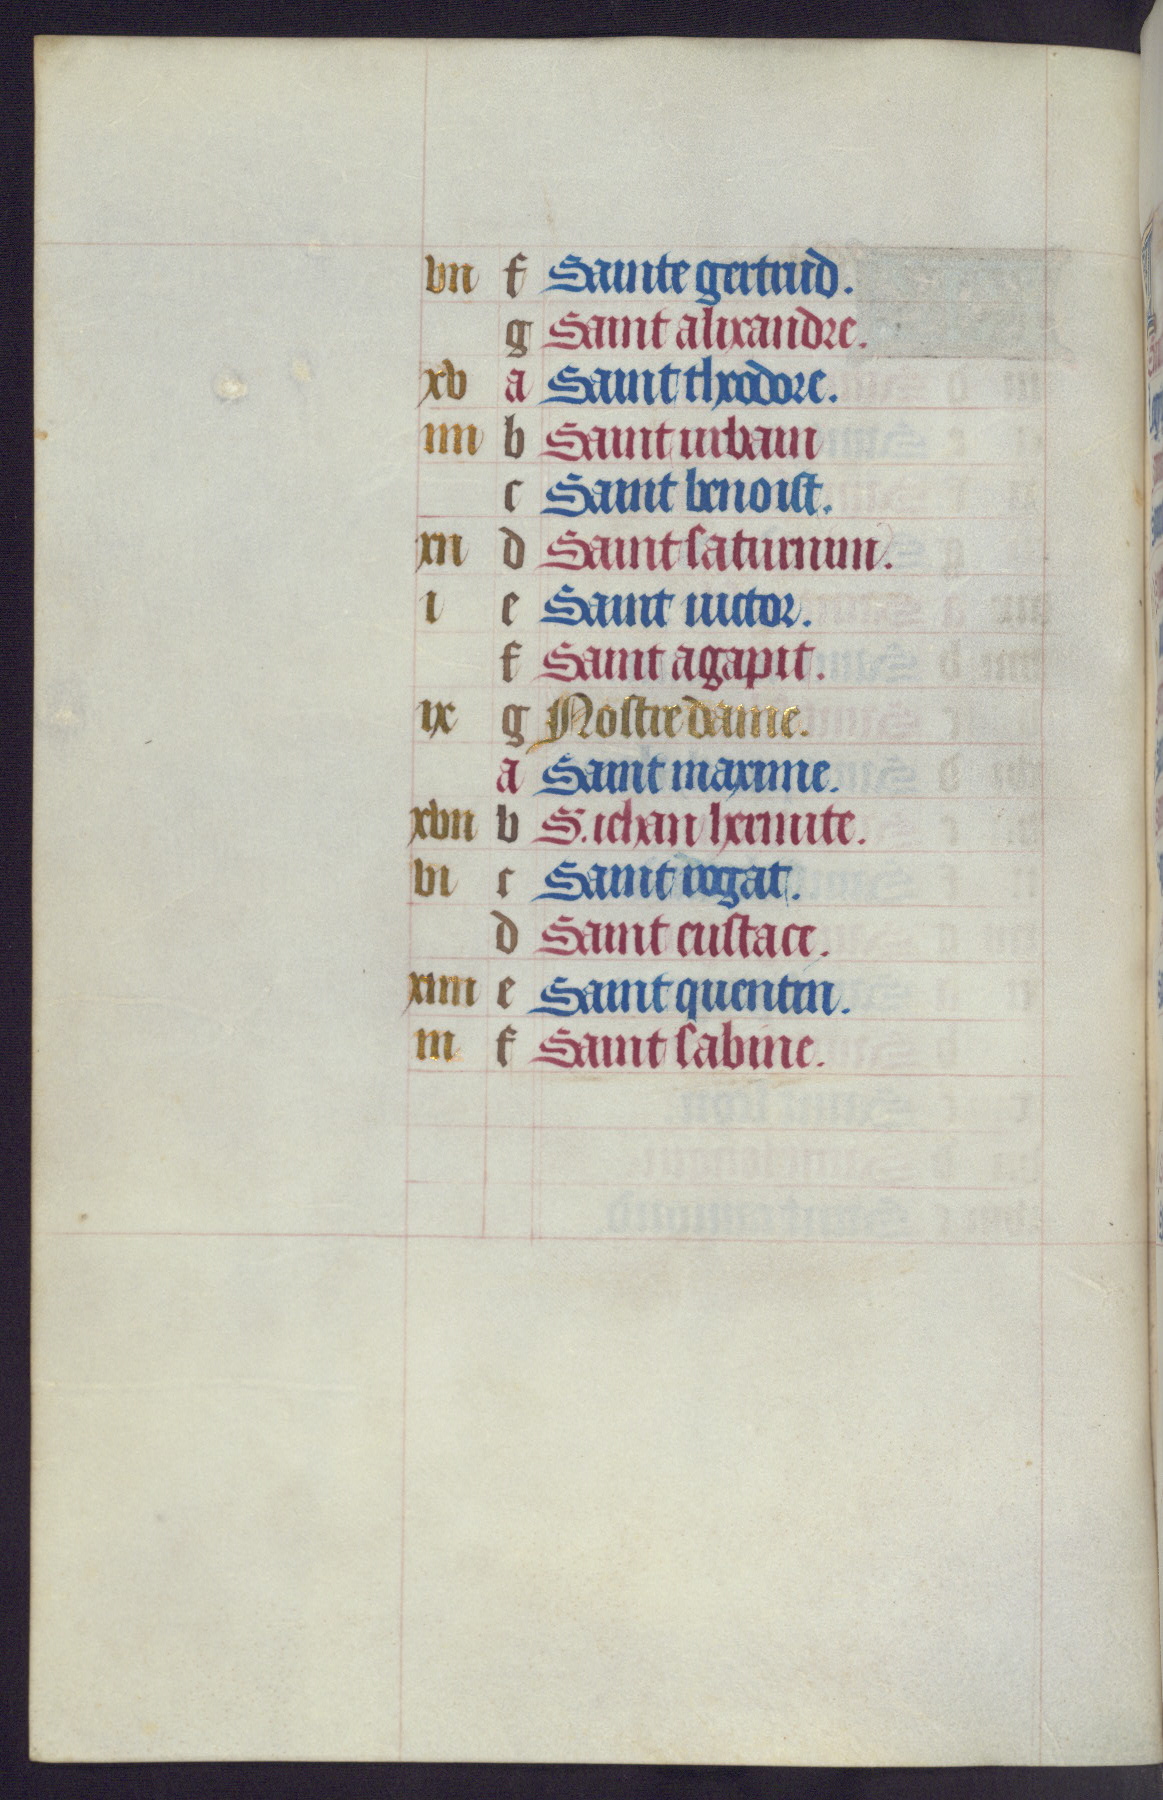 vii f Sainte gertrud.
g Saint alixandre.
xv a Saint theodore.
iiii b Saint urbain
c Saint benoist.
xii d Saint saturnin.
i e Saint victor.
f Saint agapit.
ix g Nostre dame.
a Saint maxime.
xvii b S. iehan hermite.
vi c Saint rogat.
d Saint eustace.
xiiii e Saint quentin.
iii f Saint sabine.